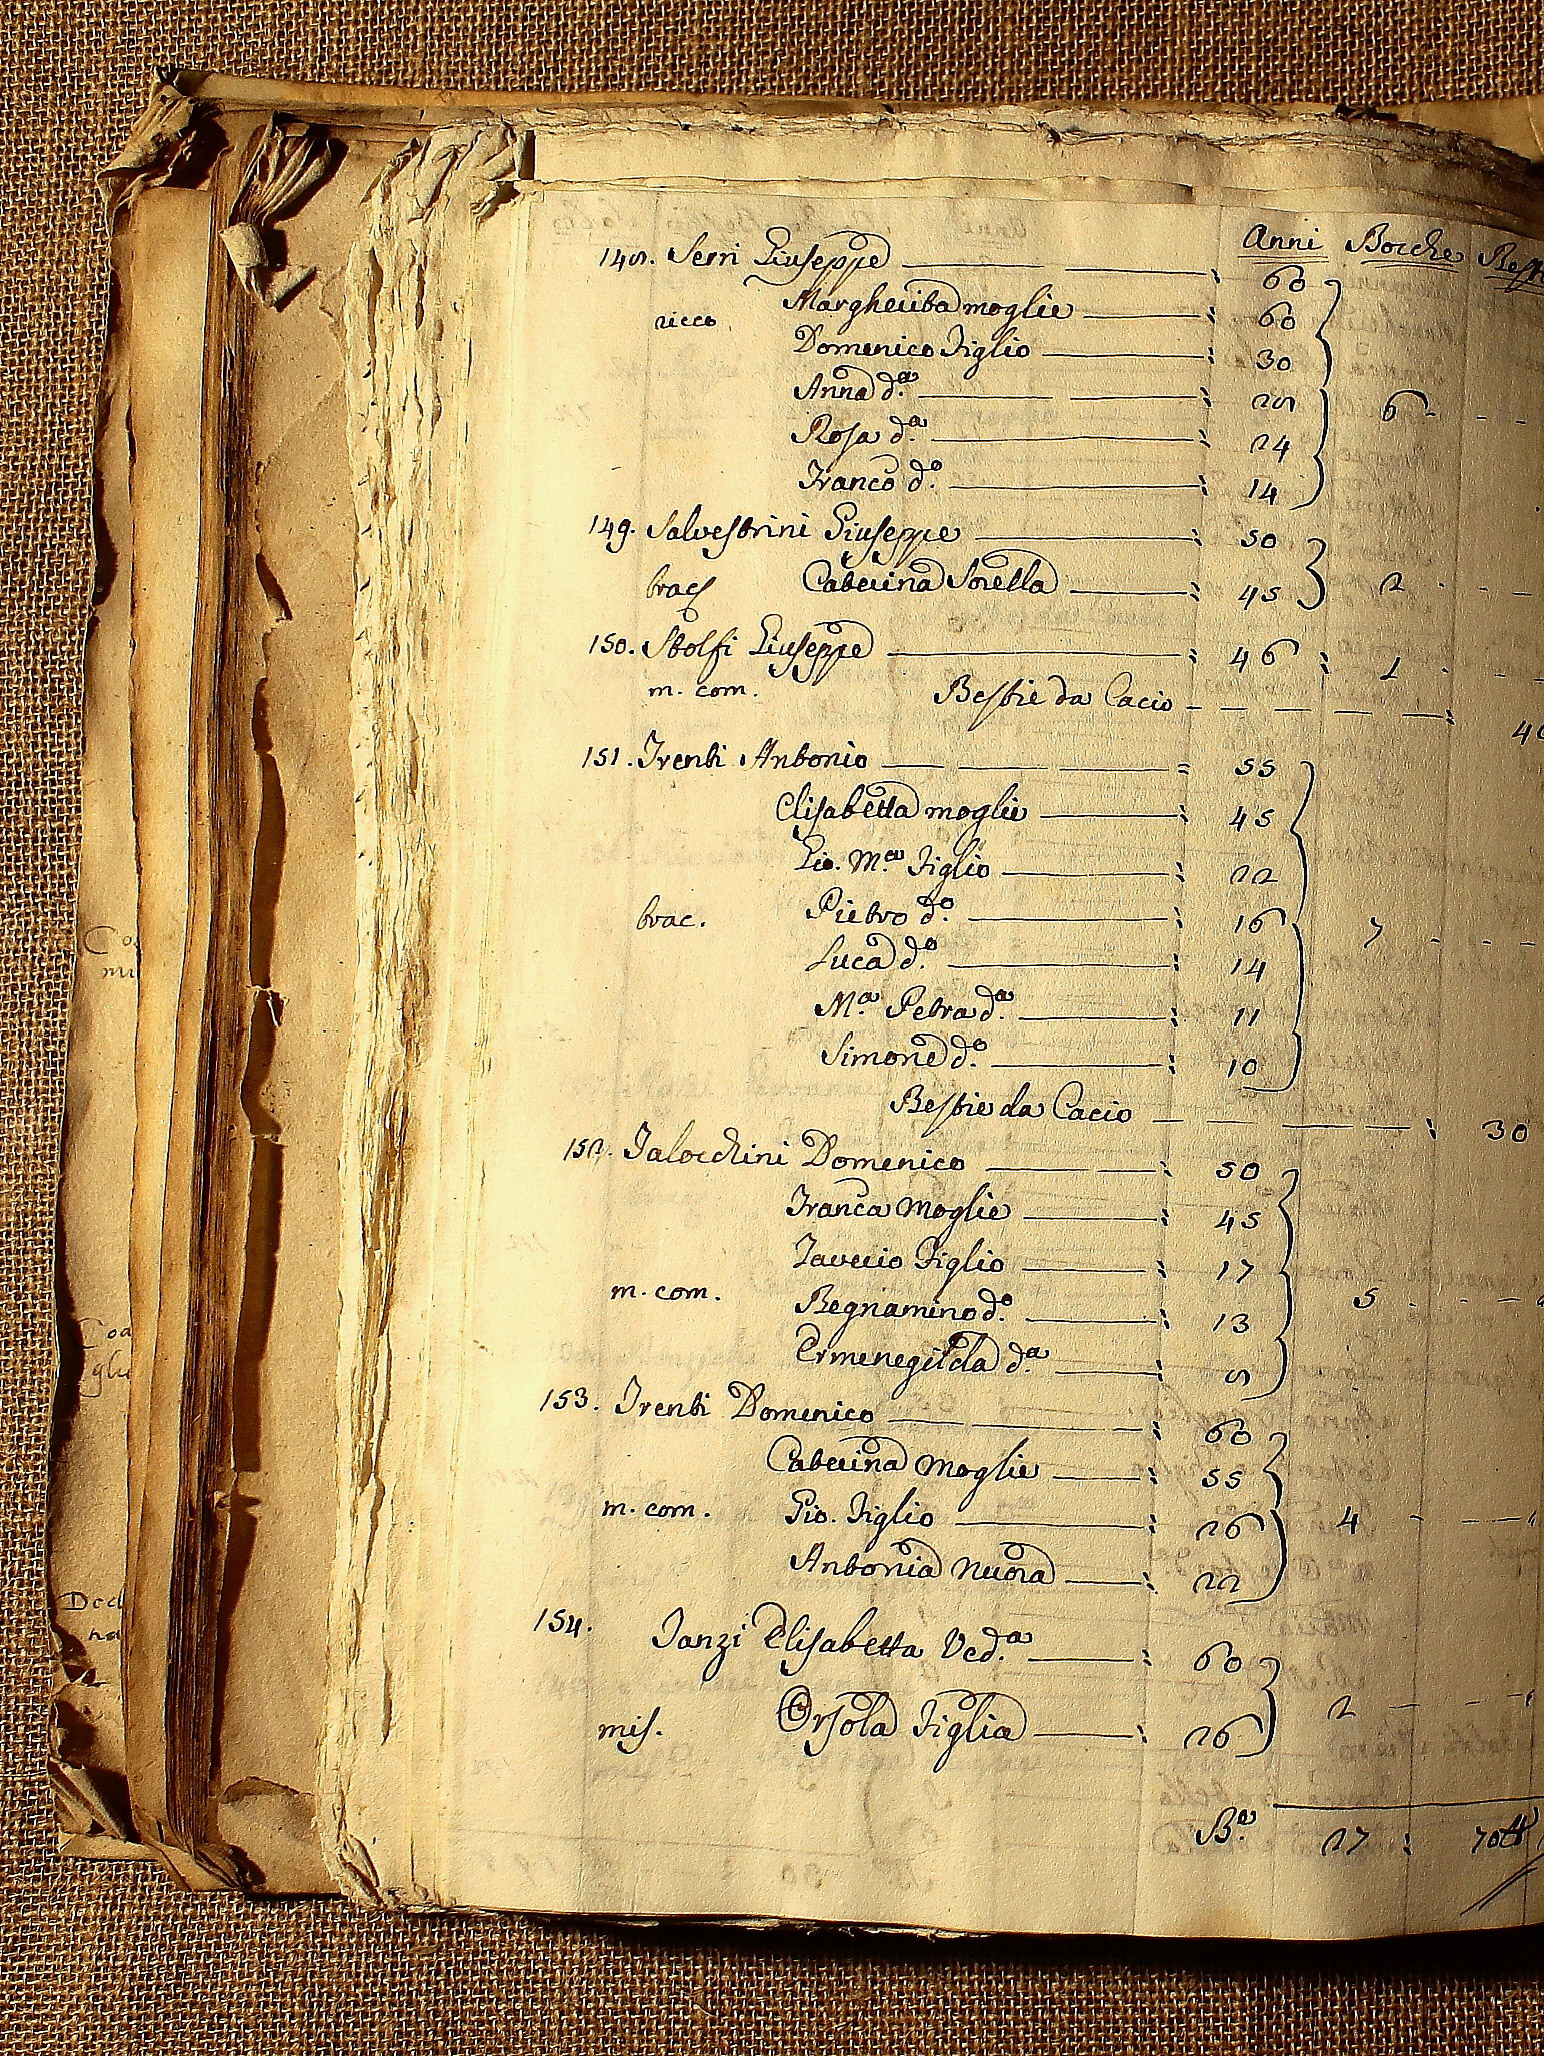 Anni Bocche
148. Serri Giuseppe 60
Margherita moglie 60
ricco
Domenico Figlio 30
Anna d.a 28
6
Rosa d.a 24
Franco d.o 14
149. Salvestrini Giuseppe 50
brac Caterina Sorella 45 2
150. Stolfi Giuseppe 46 : 1
m. com. Bestie da Cacio
151. Trenti Antonio 55
Elisabetta moglie 45
Gio. M.a Figlio 22
brac. Pietro d.o 16 7
Luca d.o 14
M.a Petra d.a 11
Simone d.o 10
Bestie da Cacio : 30
152. Falocchini Domenico 50
Franca Moglie 45
Saverio Figlio 17
m. com. 5
Begnamino d.o 13
Ermenegilda d.a 8
153. Trenti Domenico 60
Caterina Moglie 55
m. com. Gio. Figlio 26 4
Antonia Nuora 22
154. Fanzi Elisabetta Ved.a 60
mis. Orsola Figlia 26 2
27 : 70